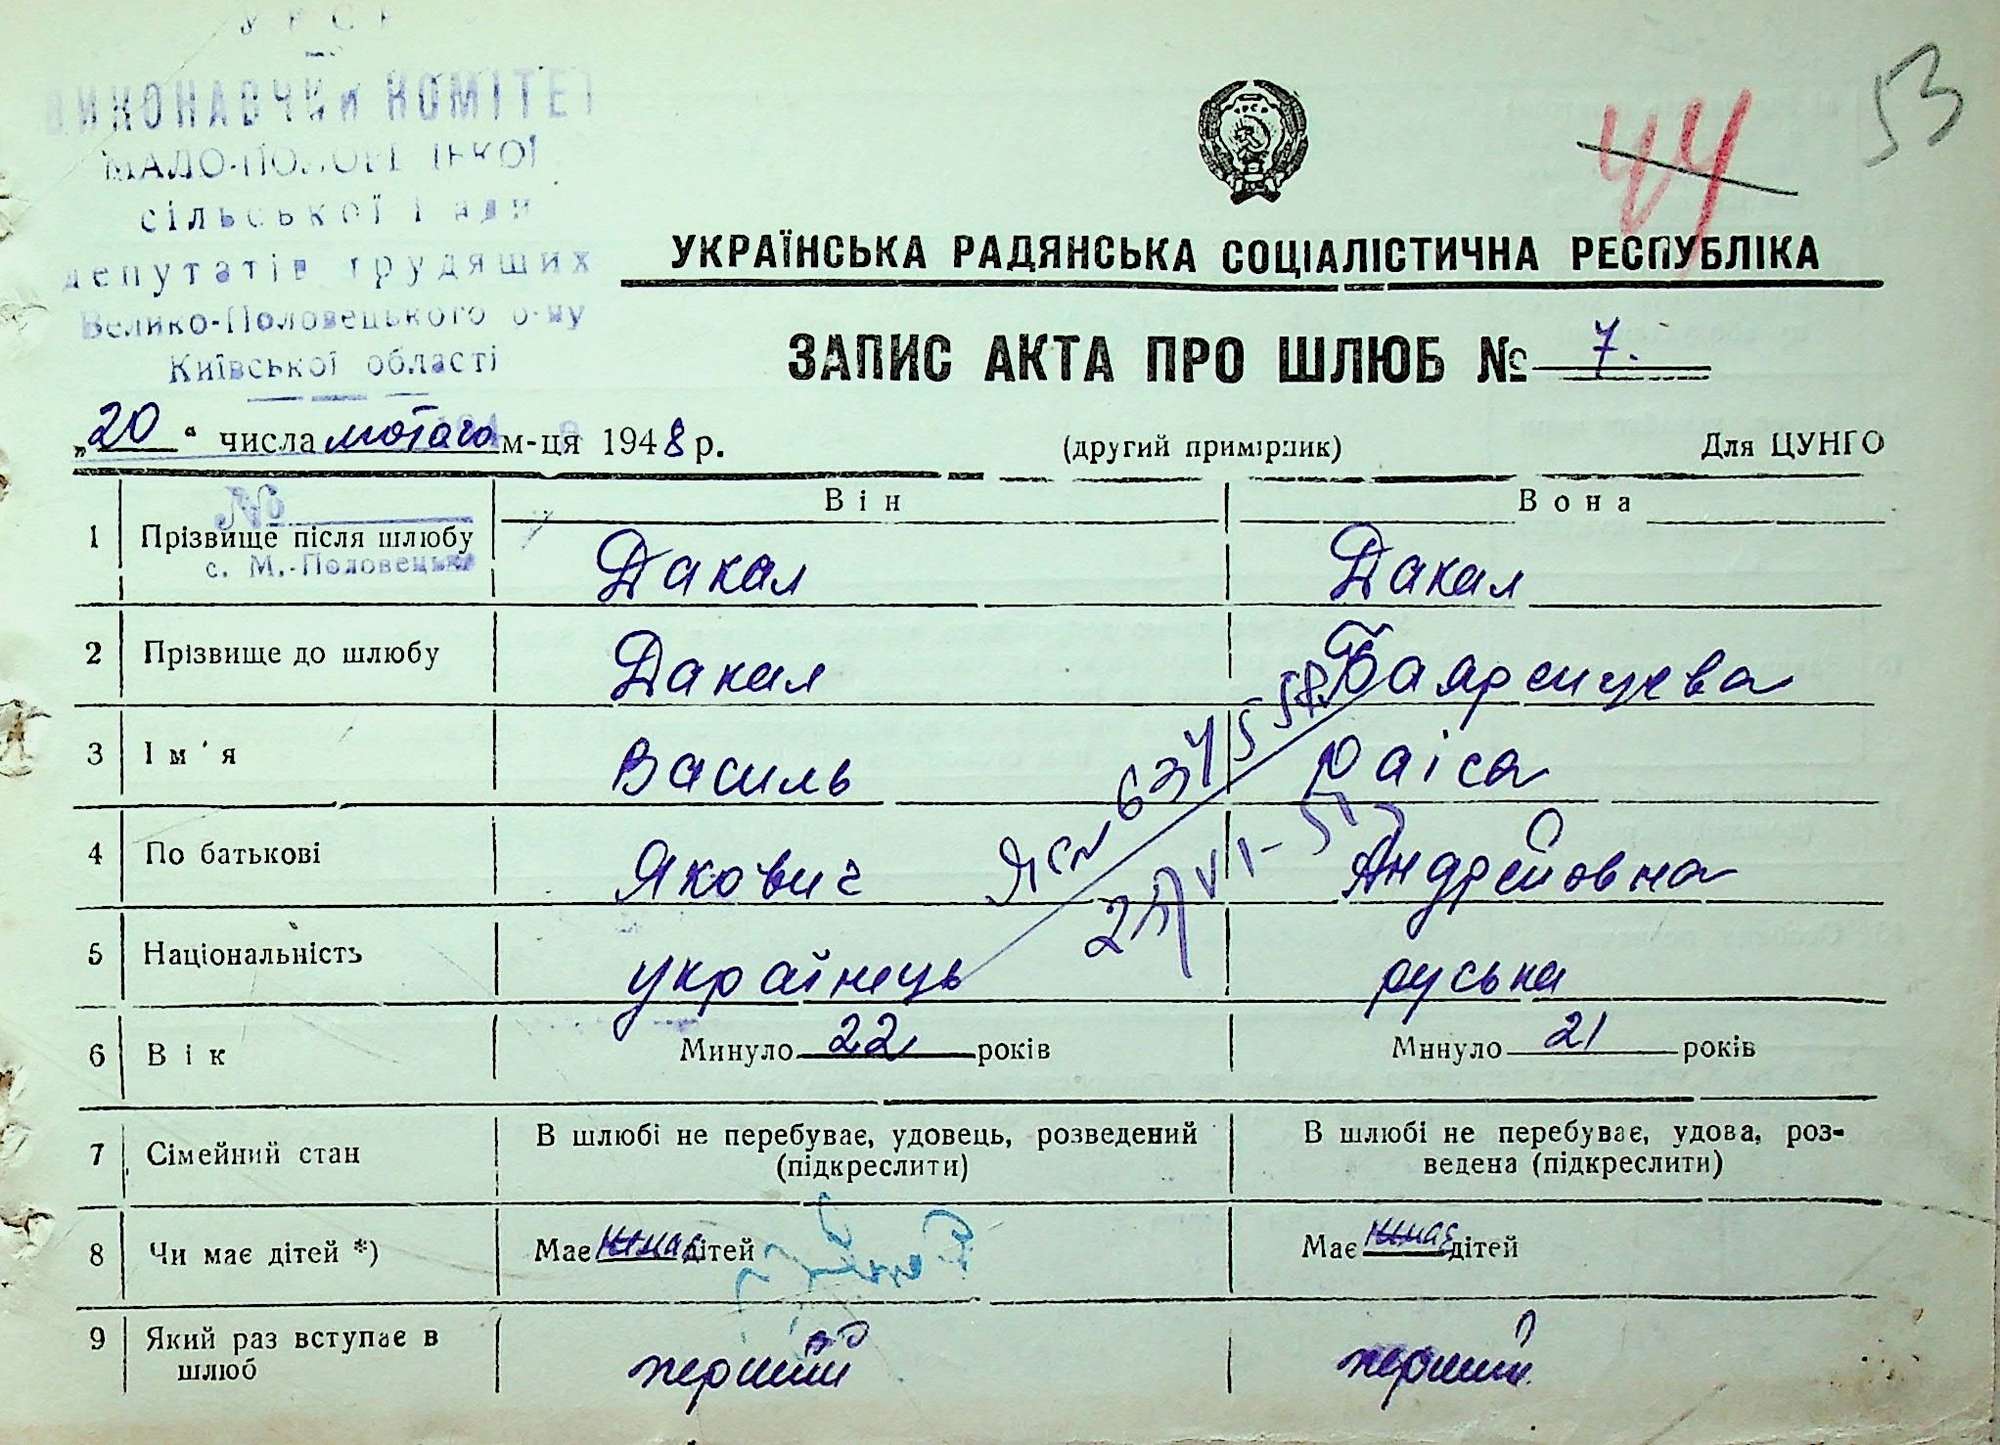 УРСР
ВИКОНАВЧИЙ КОМІТЕТ
МАЛО-ПОЛОВЕЦЬКОЇ
сільської Ради
депутатів трудящих
Велико-Половецького р-ну
Київської області
53
44
УКРАЇНСЬКА РАДЯНСЬКА СОЦІАЛІСТИЧНА РЕСПУБЛІКА
ЗАПИС АКТА ПРО ШЛЮБ № 7.
„20“ числа лютого м-ця 1948 р. (другий примірник) Для ЦУНГО
№
с. М.-Половецьке
Він Вона
1 Прізвище після шлюбу Дакал Дакал
2 Прізвище до шлюбу Дакал
3 Ім'я Василь Раіса
4 По батькові Якович Андрейовна
5 Національність українець руська
6 Вік Минуло 22 років Минуло 21 років
7 Сімейний стан В шлюбі не перебуває, удовець, розведений (підкреслити) В шлюбі не перебуває, удова, роз-
ведена (підкреслити)
8 Чи має дітей *) Має немає дітей Має немає дітей
9 Який раз вступає в
шлюб перший перший